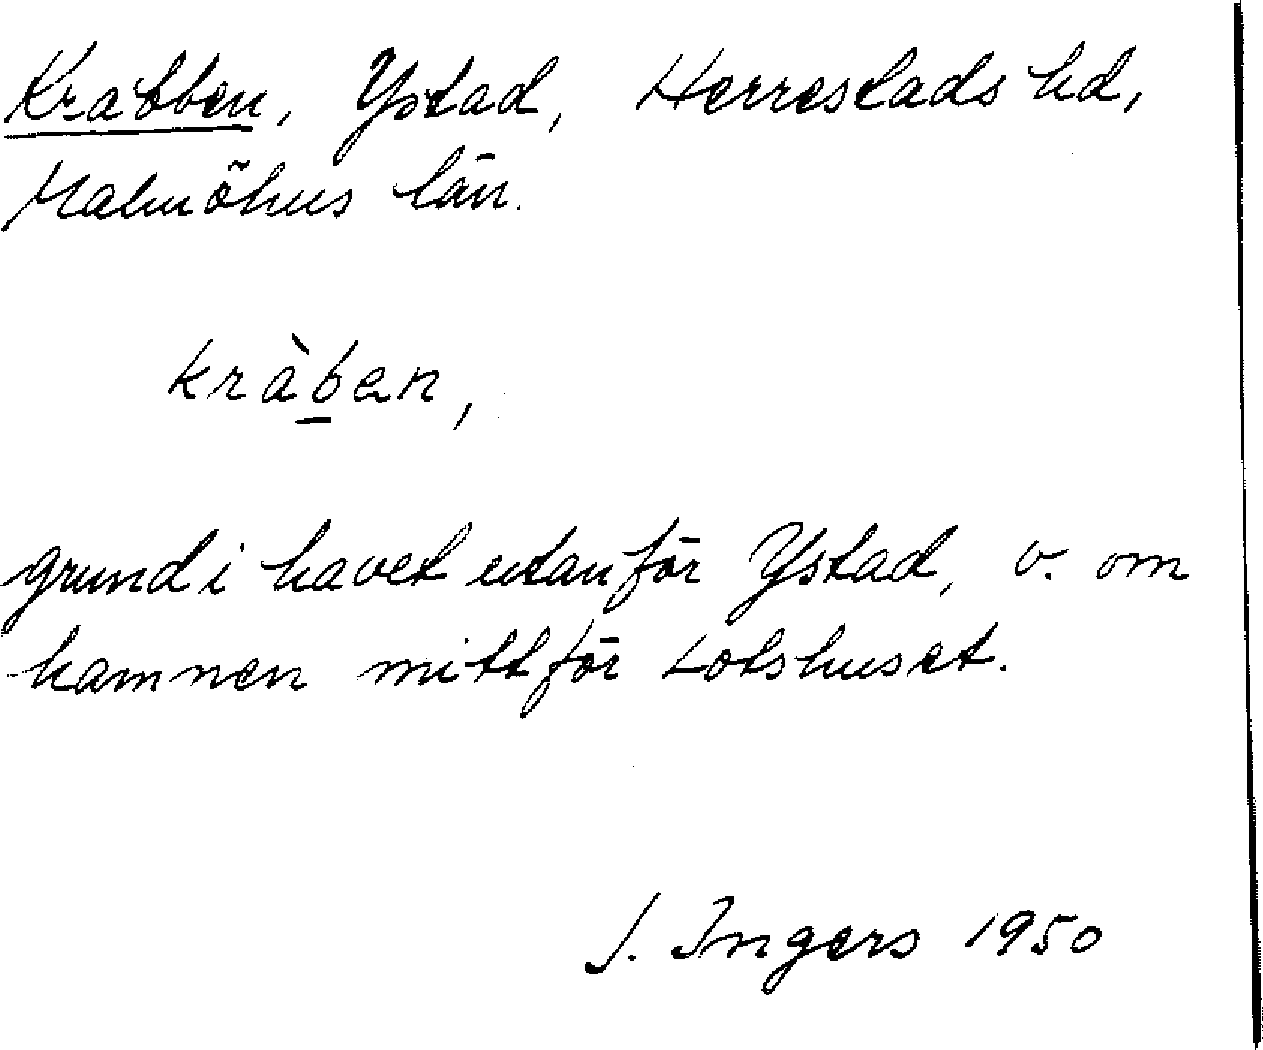 Krabben, Ystad, Herrestads hd,
Malmöhus län.
kràb̲en,
grund i havet utanför Ystad, v. om
hamnen mitt för Lotshuset.
I. Ingers 1950